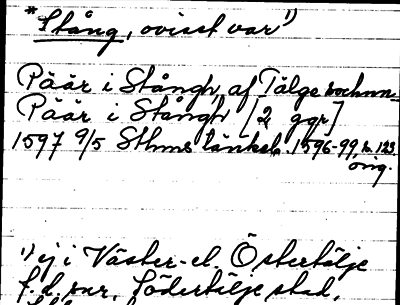 *Stång, ovisst var¹⁾
Päär i Stångh, af Tälge sochnn=
Päär i Stångh [2 ggr]
1597 9/5 Sthms tänkeb. 1596-99, s. 123,
orig.
¹⁾ ej i Väster-el. Östertälje
f.d. snr, Södertälje stad,